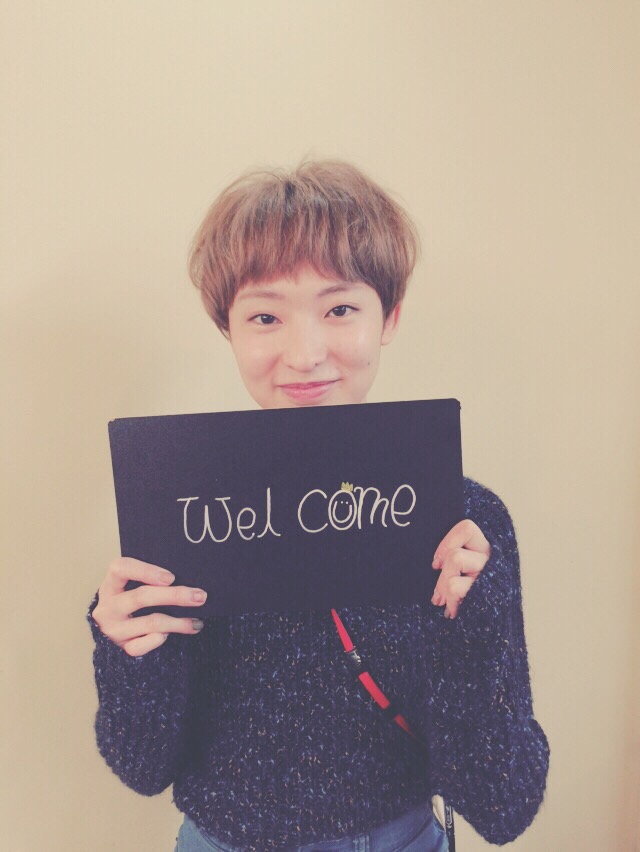 Wel come